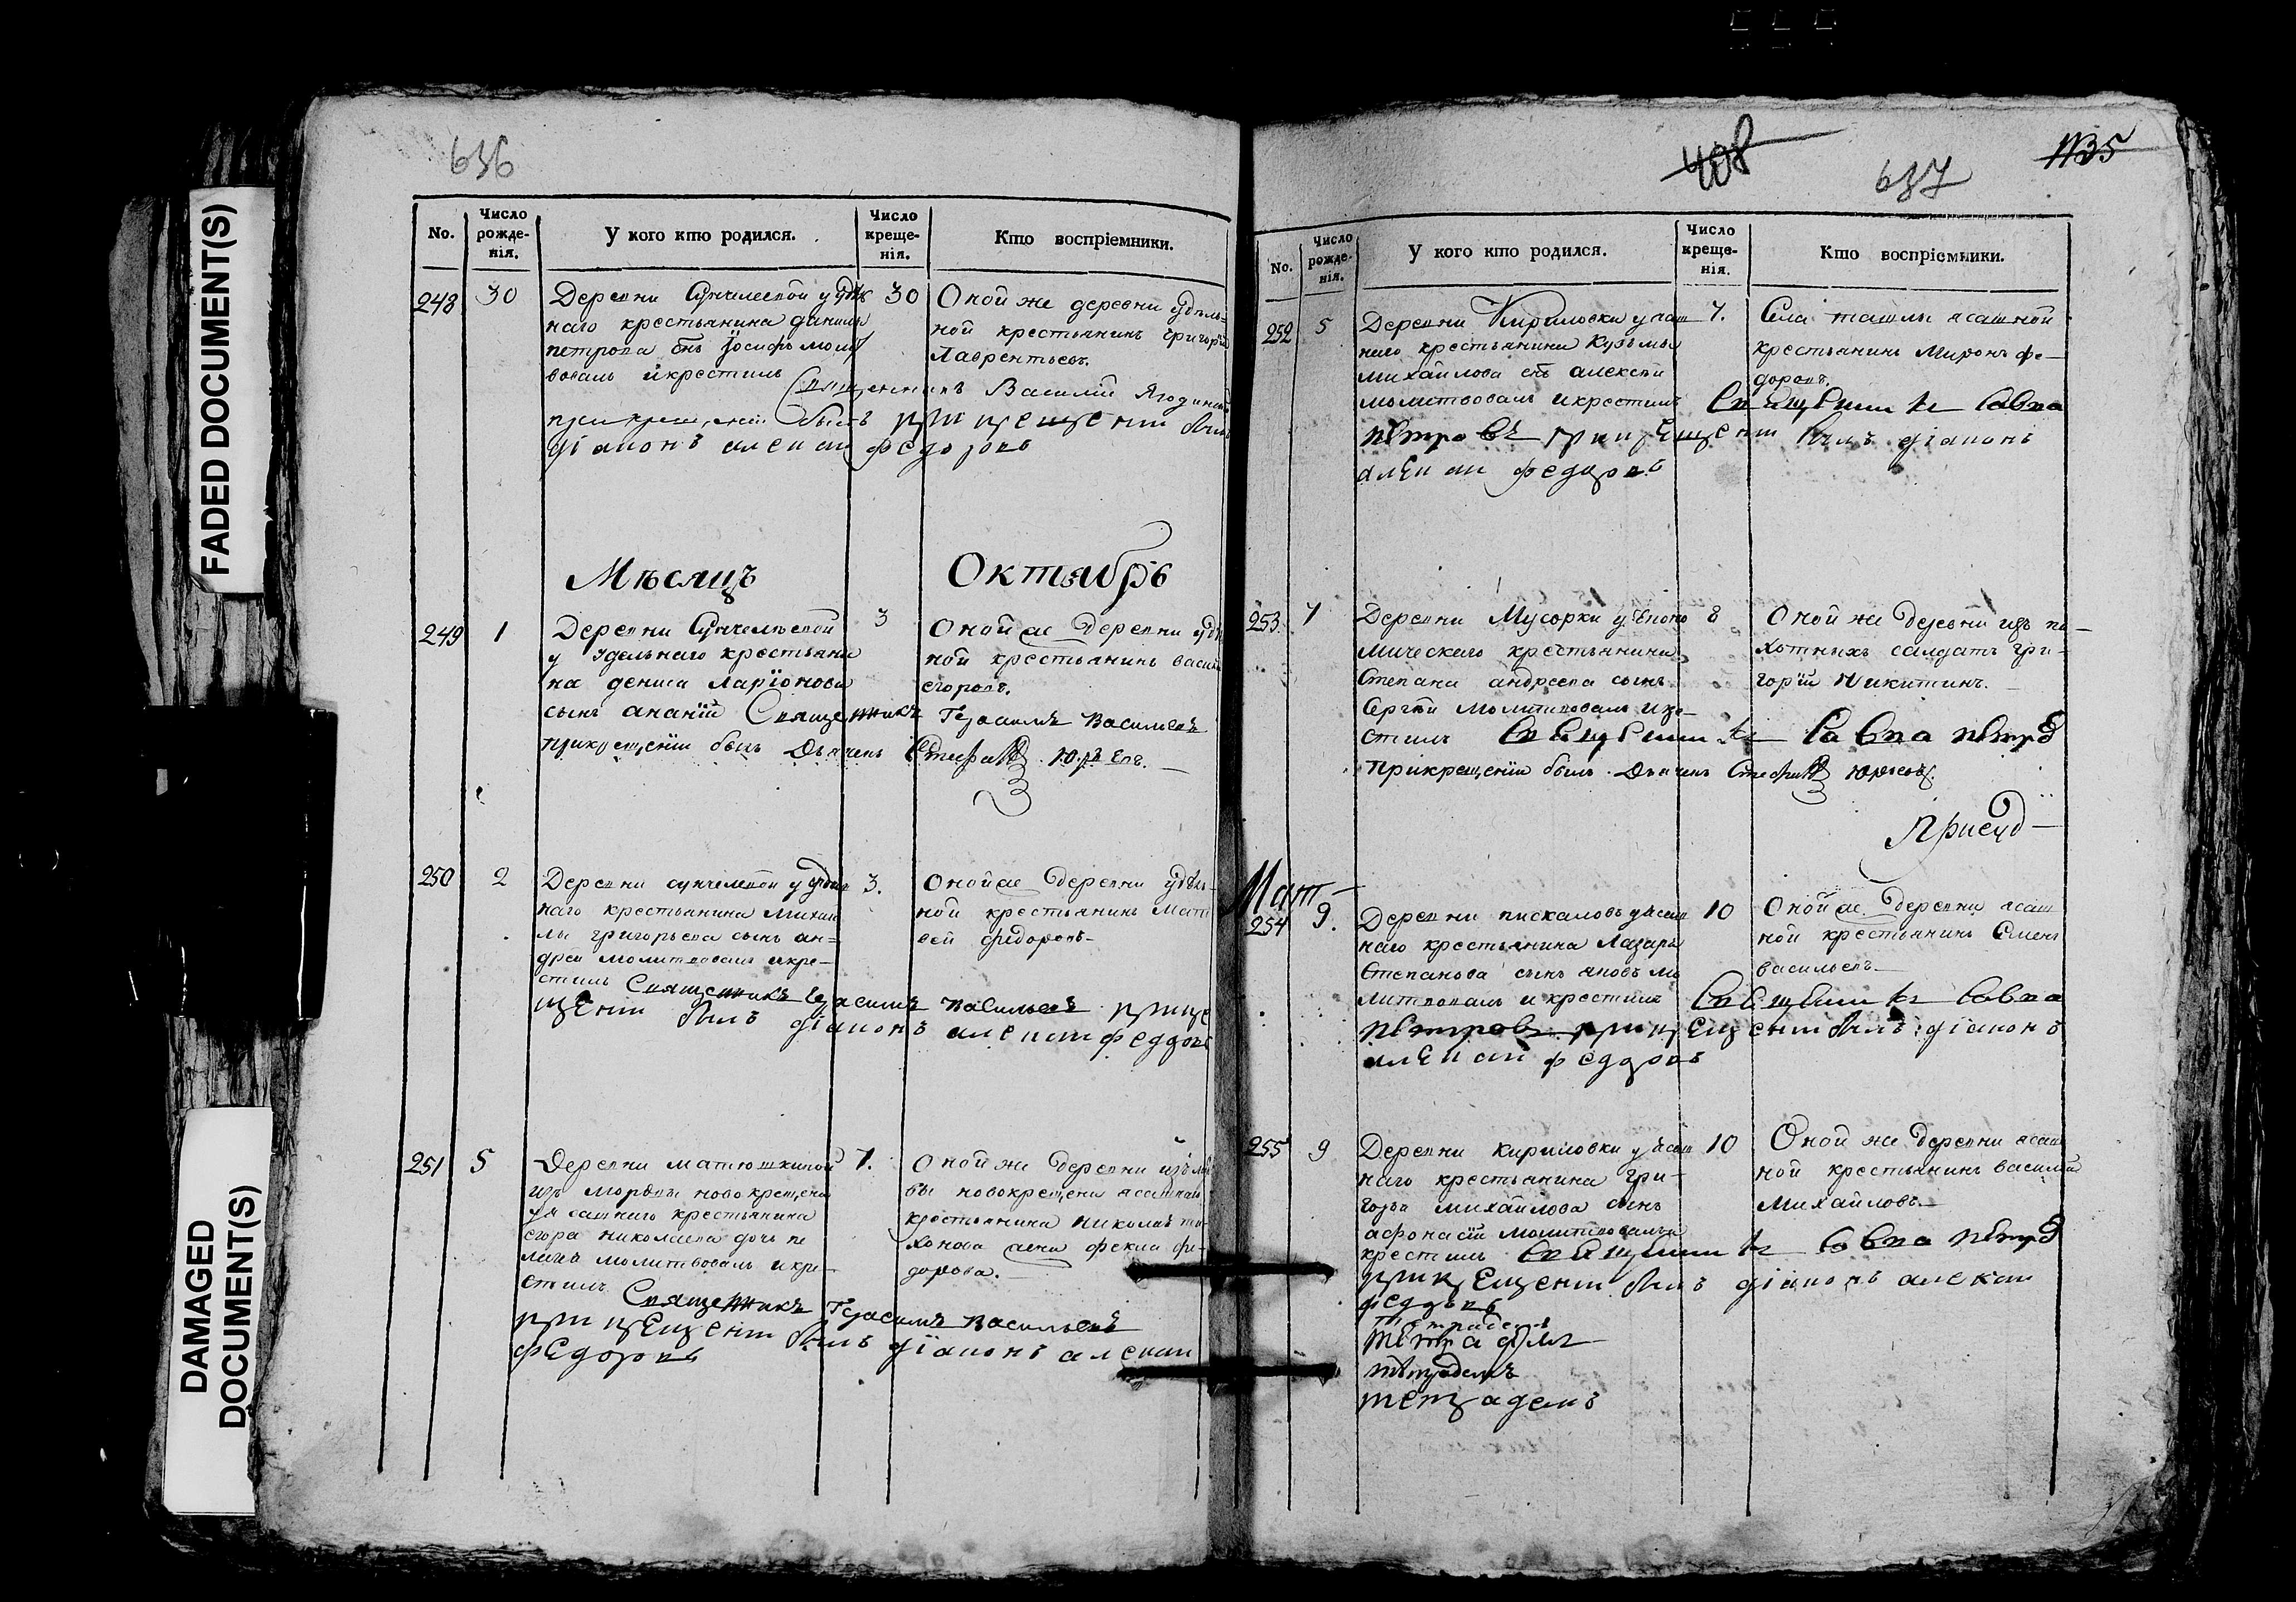 FADED DOCUMENT(S)
DAMAGED
DOCUMENT(S)
636
No.
Число
рожде-
нія.
У кого кто родился.
Число
креще-
нія.
Кто воспріемники.
248
30
Деревни Сунчелеевой у удѣль
наго крестьянина данилы
петрова снъ Іосифъ молит
вовалъ и крестилъ
Священникъ Василій Ягодинской
при крещеніи былъ
діаконъ алексѣй федоровъ
30
Оной же деревни удѣль=
ной крестьянинъ Григорій
Лаврентьевъ.
Мѣсяцъ Октябрь
249
1
Деревни Сунчелѣевой
у Удельнаго крестьяни
на дениса Ларіонова
сынъ ананій Священникъ Герасимъ Васильевъ
при крещеніи былъ Дьячекъ Стефанъ Юрьевъ.
3
Оной же Деревни удѣль
ной крестьянинъ василій
егоровъ.
250
2
Деревни сунчелевой у удѣль
наго крестьянина Михаи
лы григорьева сынъ ан=
дрей молитвовалъ и кре-
стилъ Священникъ Герасимъ Васильевъ прикре
щеніи былъ діаконъ алексѣй федоровъ
3.
Оной же деревни удѣль-
ной крестьянинъ Мат
вей федоровъ-
251
5
Деревни матюшкиной
изъ мордвы новокрещена
у ясашнаго крестьянина
егора николаева дочь пе
лагѣя молитвовалъ и кре-
стилъ Священникъ Герасимъ Васильевъ
при крещеніи былъ діаконъ алексѣй
федоровъ
7.
Оной же Деревни изъ мор
вы новокрещена ясашнаго
крестьянина николая ти-
хонова жена фекла фе-
дорова.
408
637
1135
No.
Число
рожде-
нія.
У кого кто родился.
Число
креще-
нія.
Кто воспріемники.
252
5
Деревни Кириловки у ясаш
наго крестьянина Кузьмы
михайлова снъ алексѣй
молитвовалъ и крестилъ Священникъ Савва
петровъ при крещеніи былъ діаконъ
алексѣй федоровъ
7.
Села ташлы ясашной
крестьянинъ Миронъ фе-
доровъ.
253
7
Деревни Мусорки у Еконо
мическаго крестьянина
Степана андреева сынъ
Сергѣй молитвовалъ и кре-
стилъ Священникъ Савва петровъ
при крещеніи былъ Дьячекъ Стефанъ Юрьевъ.
8
Оной же Деревни изъ па-
хотныхъ салдатъ гри-
горій Никитинъ.
Присуд-
Мат-
254
9.
Деревни пискаловъ у ясаш
наго крестьянина Лазаря
Степанова сынъ яковъ мо
литвовалъ и крестилъ Священникъ Савва
петровъ при крещеніи былъ діаконъ
алексѣй федоровъ
10
Оной же деревни ясаш
ной крестьянинъ Семенъ
васильевъ
255
9
Деревни Кириловки у ясаш
наго крестьянина гри-
горья михайлова сынъ
афонасій молитвовалъ и
крестилъ Священникъ Савва петровъ
при крещеніи былъ діаконъ алексѣй
федоровъ
10
Оной же деревни ясаш
ной крестьянинъ василій
Михайловъ